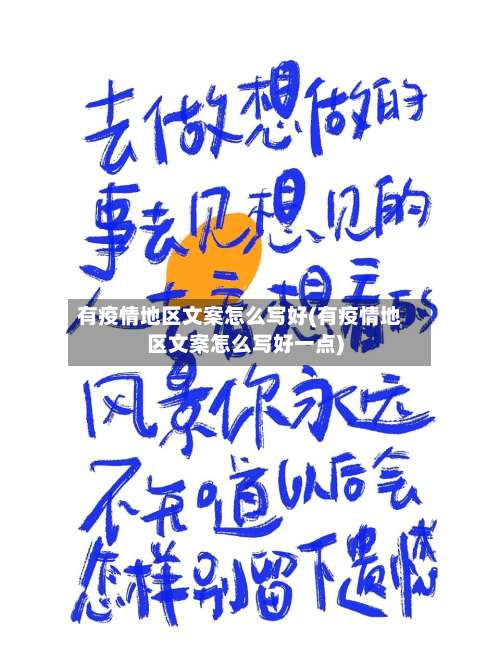 去做想做的
事去见想见的
人去看想看的
有疫情地区文案怎么写好(有疫情地
区文案怎么写好一点)
风景你永远
不知道以后会
怎样别留下遗憾